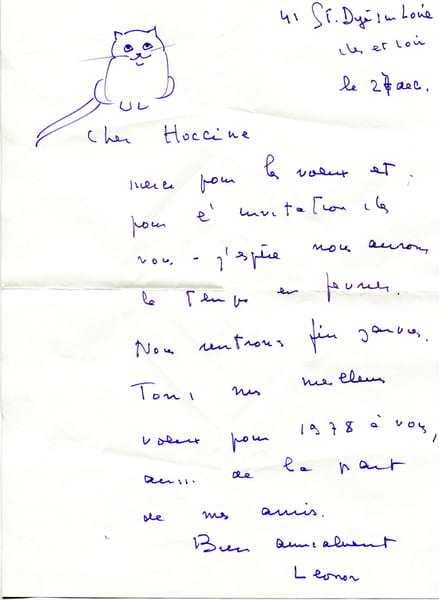 41 St. Dyé sur Loire
le 27 dec.
Cher Hoccine
merci pour les voeux et
pour l'invitation chez
vous - j'espère nous aurons
le temps en fevrier.
Nous rentrons fin janvier.
Tous mes meilleurs
voeux pour 1978 à vous,
aussi de la part
de mes amis.
Bien amicalement
Leonor